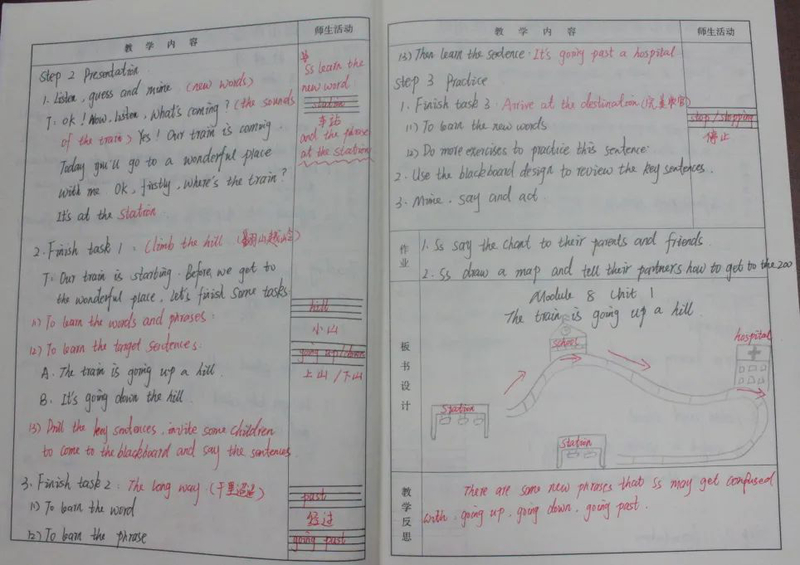 教 学 内 容
师生活动
Step 2 Presentation
1. Listen, guess and mime (new words)
T: OK! Now, Listen, What's coming? (the sounds
of the train) Yes! Our train is coming.
Today you'll go to a wonderful place
with me. OK, firstly, where's the train?
It's at the station
2. Finish task 1: Climb the hill
T: Our train is starting. Before we get to
the wonderful place, Let's finish some tasks
(1) To learn the words and phrases:
(2) To learn the target sentences.
A. The train is going up a hill.
B. It's going down the hill.
(3) Drill the key sentences, invite some children
to come to the blackboard and say the sentences
3. Finish task 2: The long way (千里迢迢)
(1) To learn the word
(2) To learn the phrase
Ss learn the
new word
station
车站
and the phrase
at the station
hill
小山
going up/down
上山/下山
past
经过
going past
教 学 内 容
师生活动
(3) Then learn the sentence: It's going past a hospital
Step 3 Practice
1. Finish task 3: Arrive at the destination
(1) To learn the new words
(2) Do more exercises to practice this sentence:
2. Use the blackboard design to review the key sentences.
3. Mime, say and act
stop/stopping
停止
作业
1. Ss say the chant to their parents and friends.
2. Ss draw a map and tell their partners how to get to the zoo
板书设计
Module 8 Unit 1
The train is going up a hill.
hospital
station
station
教学反思
There are some new phrases that Ss may get confused
with, going up, going down, going past.